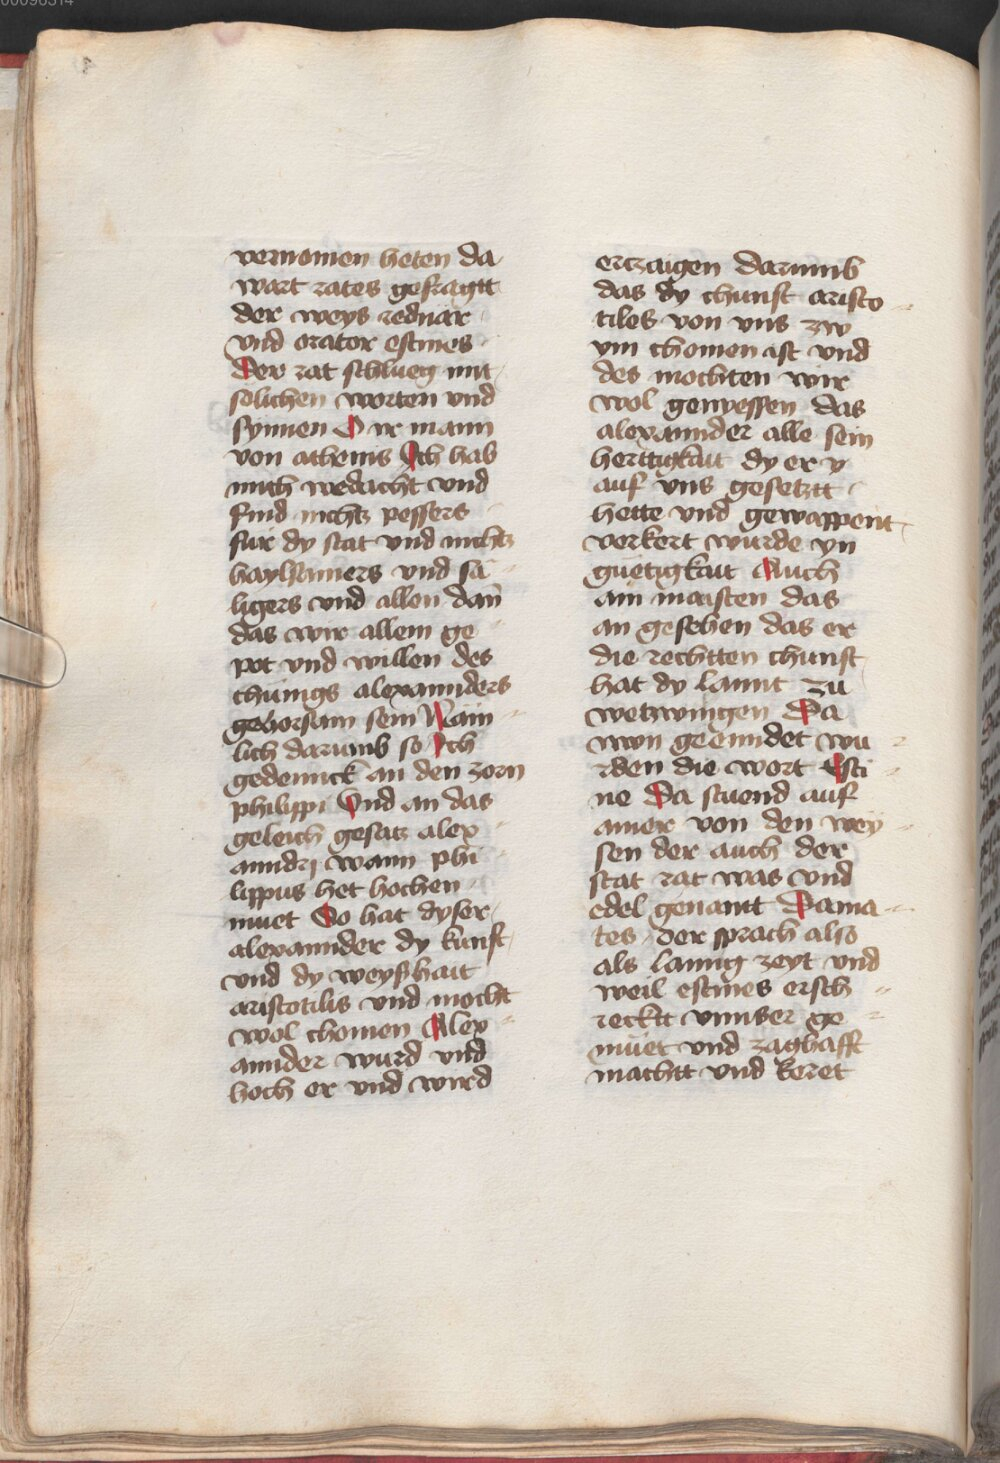 vernomen heten da
wart rates gefragtt
der weys rednär
vnd orator estines
Der rat schlueg mit
solichen worten vnd
synnen O ir mann
von athenis Ich hab
mich wedacht vnd
find nichtz pessers
für dy stat vnd nichtz
haylsamers vnd sä
ligers vnd allen dañ
das wir allem ge
pot vnd willen des
chünigs alexannders
gehorsam sein Näm
lich darumb so Ich
gedennck an den zorn
philippi Vnd an das
geleich gesatz alex
anndrj wann phi
lippus het hochen
muet So hat dyser
alexannder dy kunst
vnd dy weyßhait
aristotilis vnd mocht
wol chomen Alex
annder wurd vnd
hoch er vnd wird
erczaigen darumb
das dy chunst aristo
tiles von vns zw
ym chomen ist vnd
des mochten wir
wol genyessen das
alexannder alle sein
herttigkait dy er y
auf vns gesetztt
hette vnd gewappent
verkert wurde yn
guetigkait Auch
am maisten das
an gesehen das er
die rechtten chunst
hat dy lannt zu
wetzwingen Da
nwn geenndet wu
rden die wort Esti
ne Da stuend auf
ainer von den wey
sen der auch der
stat rat was vnd
edel genannt Dama
tes der sprach also
als lanng zeyt vnd
weil estines ersch
reckt vnnser ge
müet vnd zaghafft
machtt vnd keret